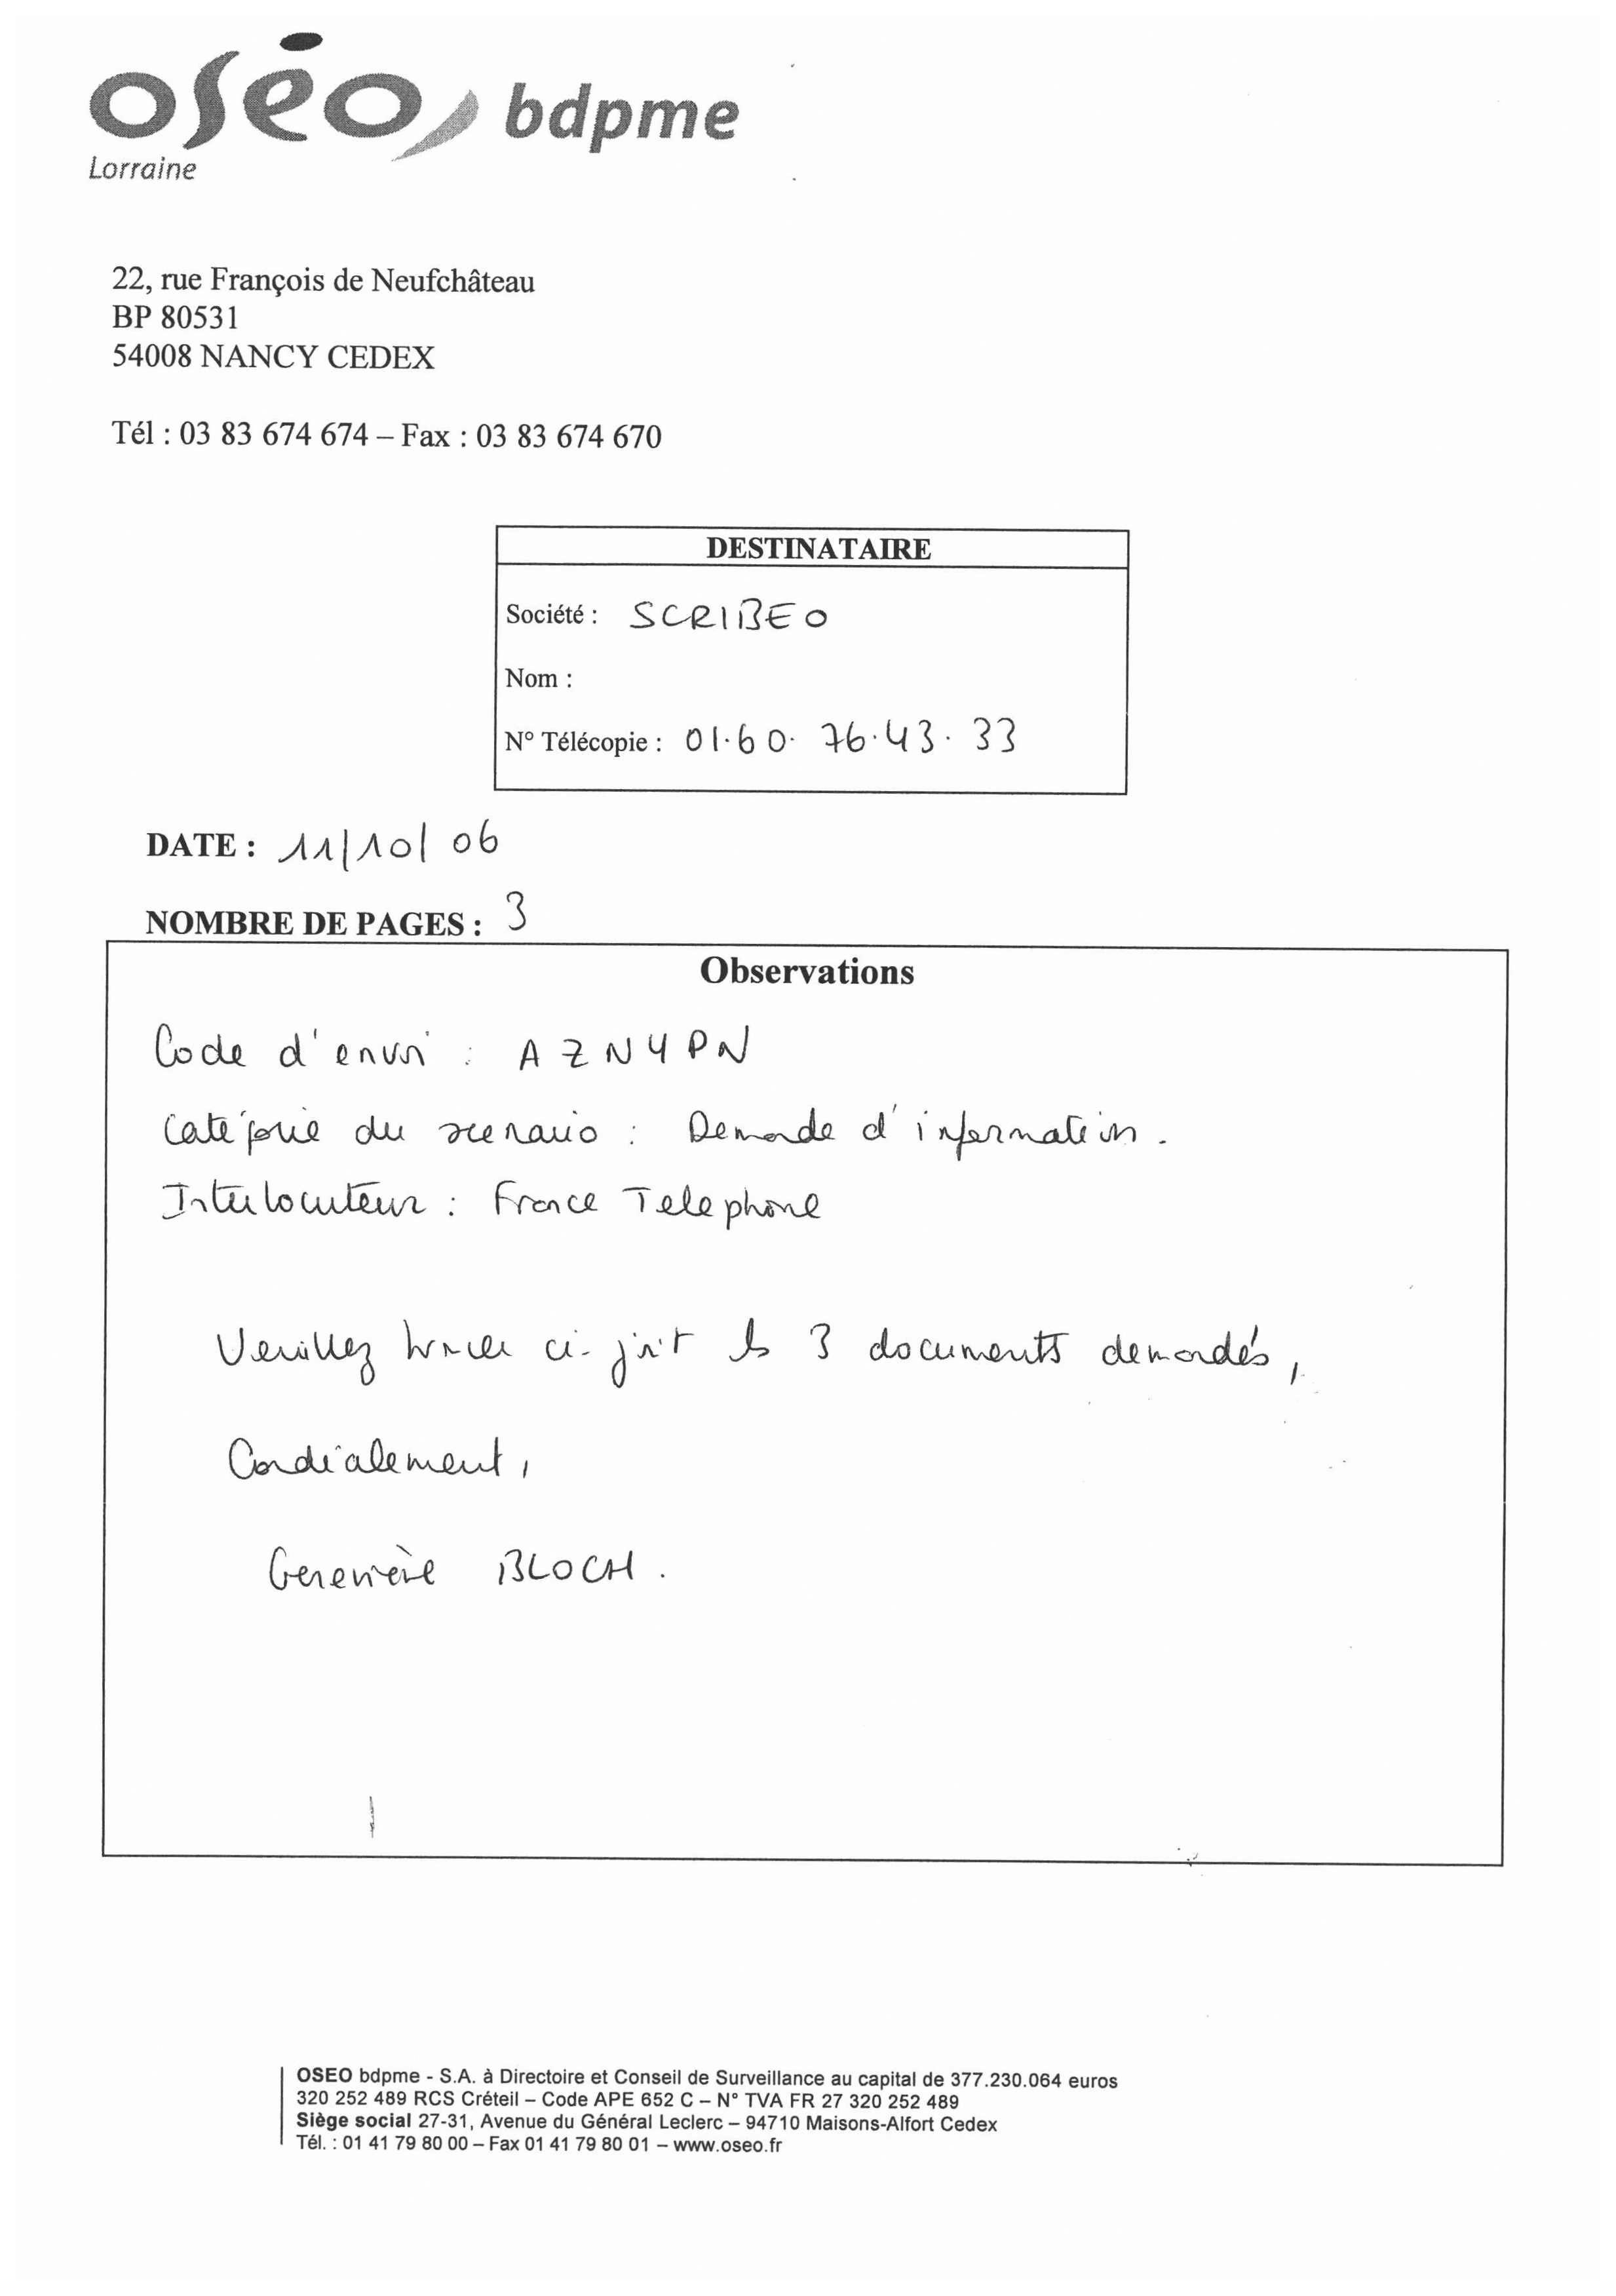 oséo bdpme
Lorraine
22, rue François de Neufchâteau
BP 80531
54008 NANCY CEDEX
Tél : 03 83 674 674 – Fax : 03 83 674 670
DESTINATAIRE
Société : SCRIBEO
Nom :
N° Télécopie : 01.60.76.43.33
DATE : 11/10/06
NOMBRE DE PAGES : 3
Observations
Code d'envoi : AZN4PN
Catégorie du scenario : Demande d'information.
Interlocuteur : France Telephone
Veuillez trouver ci-joint les 3 documents demandés,
Cordialement,
Geneviève BLOCH.
OSEO bdpme - S.A. à Directoire et Conseil de Surveillance au capital de 377.230.064 euros
320 252 489 RCS Créteil – Code APE 652 C – N° TVA FR 27 320 252 489
Siège social 27-31, Avenue du Général Leclerc – 94710 Maisons-Alfort Cedex
Tél. : 01 41 79 80 00 – Fax 01 41 79 80 01 – www.oseo.fr